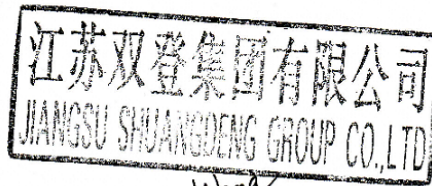 江苏双登集团有限公司
JIANGSU SHUANGDENG GROUP CO.,LTD